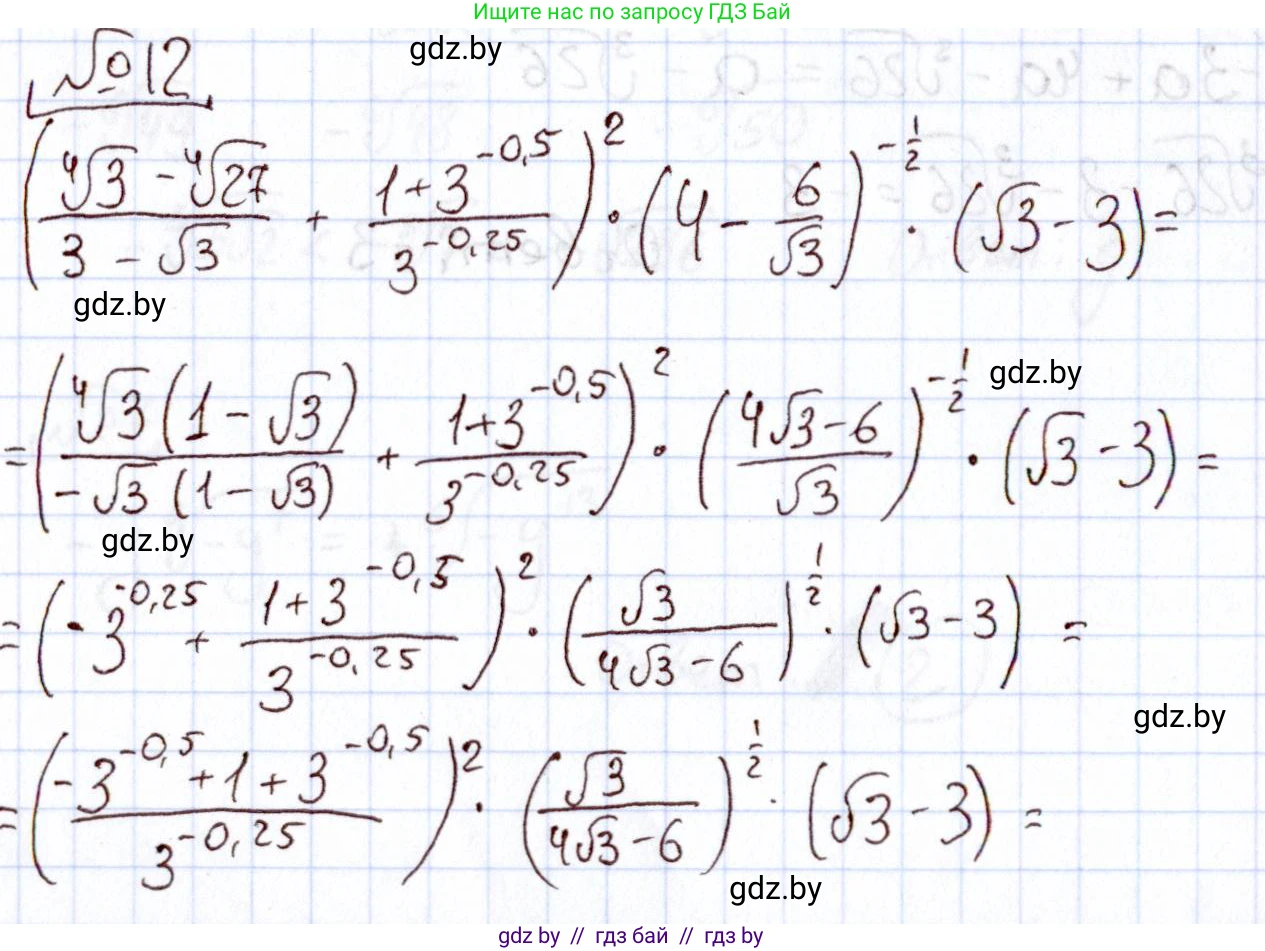 Ищите нас по запросу ГДЗ Бай
gdz.by
№12
((⁴√3 − ⁴√27)/(3 − √3) + (1+3^(−0,5))/(3^(−0,25)))^2 · (4 − 6/√3)^(−1/2) · (√3 − 3) =
gdz.by
gdz.by
= ((⁴√3(1 − √3))/(−√3(1 − √3)) + (1+3^(−0,5))/(3^(−0,25)))^2 · ((4√3−6)/√3)^(−1/2) · (√3 − 3) =
gdz.by
= (−3^(−0,25) + (1+3^(−0,5))/(3^(−0,25)))^2 · (√3/(4√3−6))^(1/2) · (√3 − 3) =
gdz.by
= ((−3^(−0,5) + 1 + 3^(−0,5))/(3^(−0,25)))^2 · (√3/(4√3−6))^(1/2) · (√3 − 3) =
gdz.by
gdz by // гдз бай // гдз by